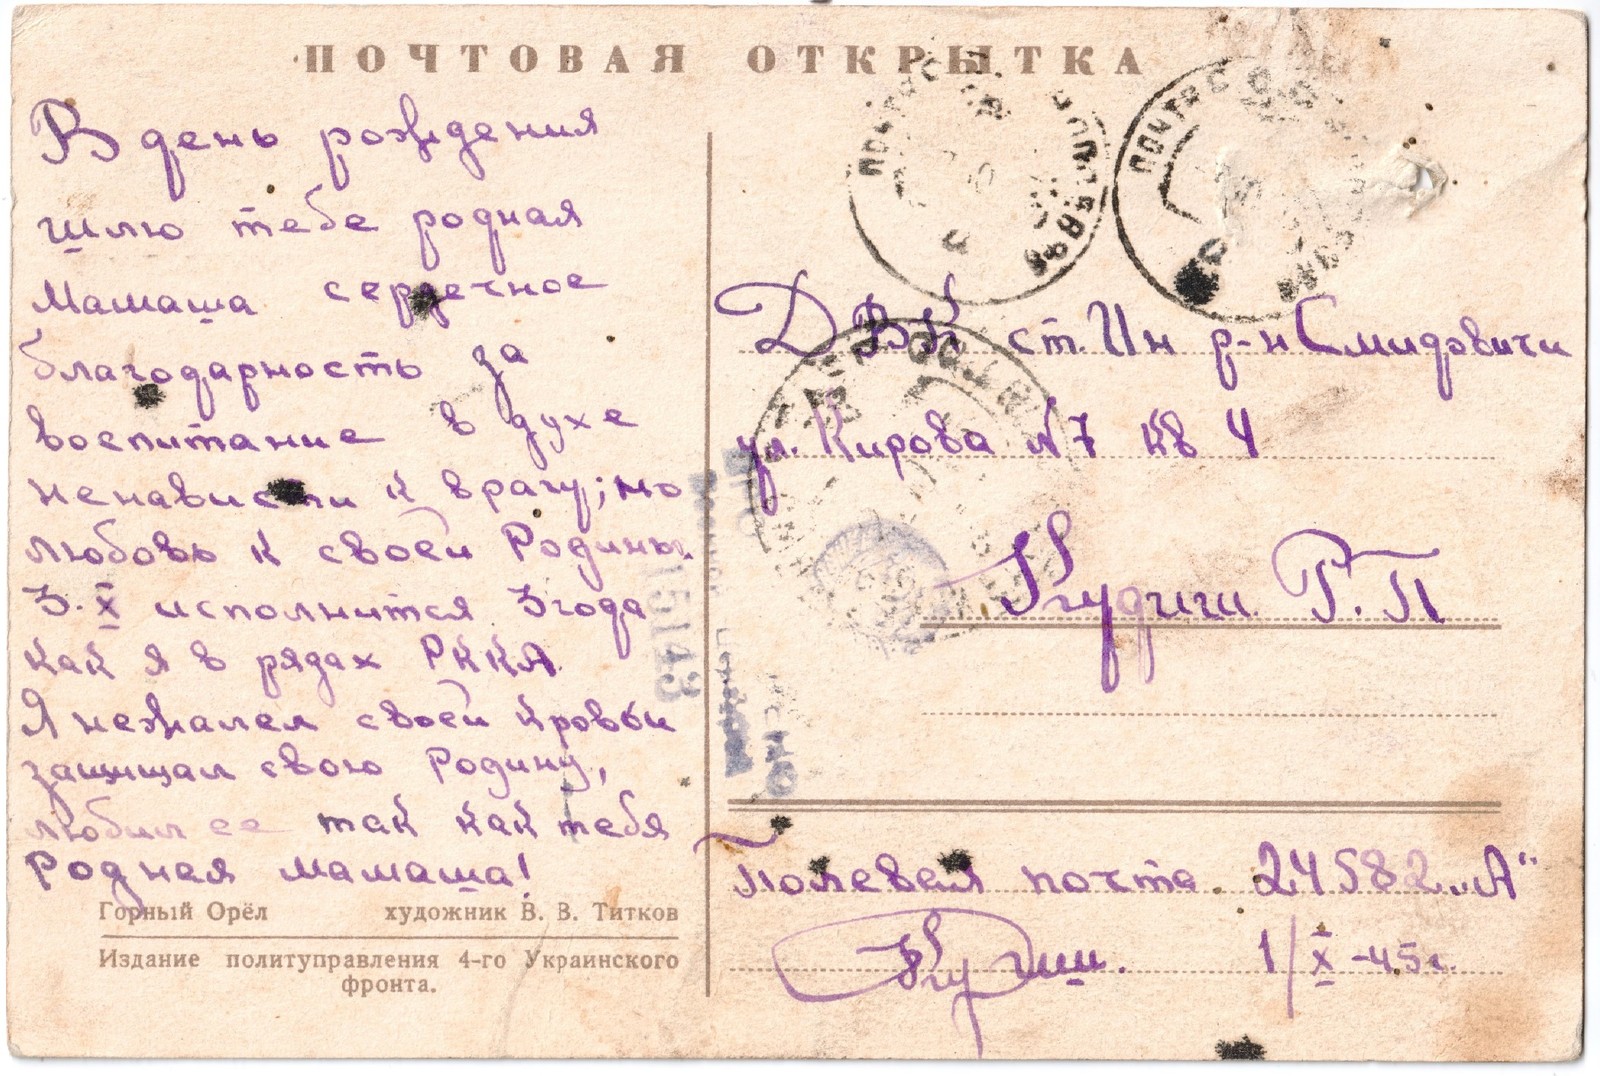 ПОЧТОВАЯ ОТКРЫТКА
В день рождения
шлю тебе родная
Мамаша сердечное
благодарность за
воспитание в духе
ненависти к врагу; но
любовь к своей Родины
3.X исполнится 3 года
как я в рядах РККА.
Я нежалел своей кровьи
защищал свою Родину,
любил ее так как тебя
Родная мамаша!
Горный Орёл художник В. В. Титков
Издание политуправления 4-го Украинского
фронта.
ДВК ст. Ин р-н Смидовичи
ул. Кирова №7 кв 4
Р.П
Полевая почта. 24582 „А“
1/X-45г.
15143